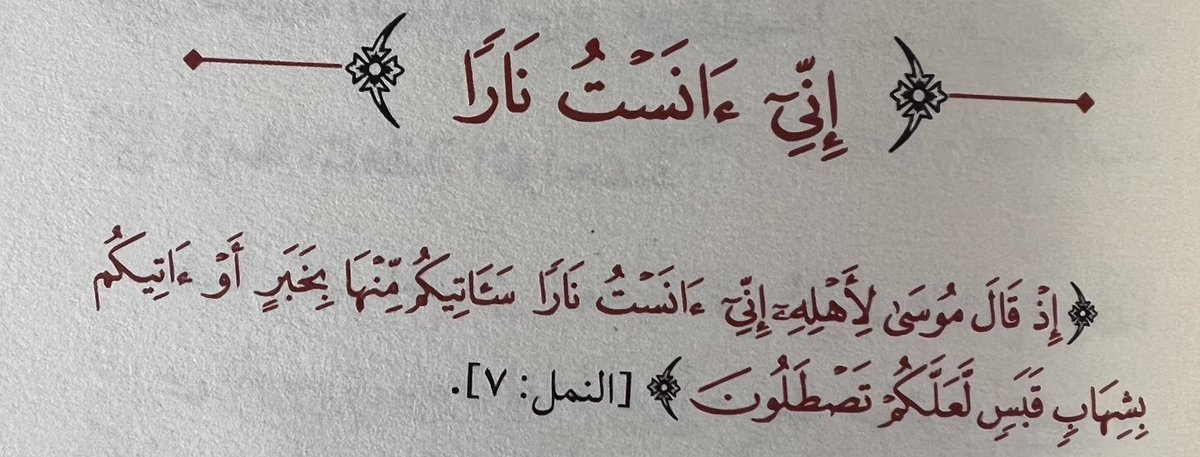 ﴿ إِنِّيٓ ءَانَسۡتُ نَارٗا ﴾
﴿إِذۡ قَالَ مُوسَىٰ لِأَهۡلِهِۦٓ إِنِّيٓ ءَانَسۡتُ نَارٗا سَـَٔاتِيكُم مِّنۡهَا بِخَبَرٍ أَوۡ ءَاتِيكُم
بِشِهَابِ قَبَسٖ لَّعَلَّكُمۡ تَصۡطَلُونَ﴾ [النمل: ٧].